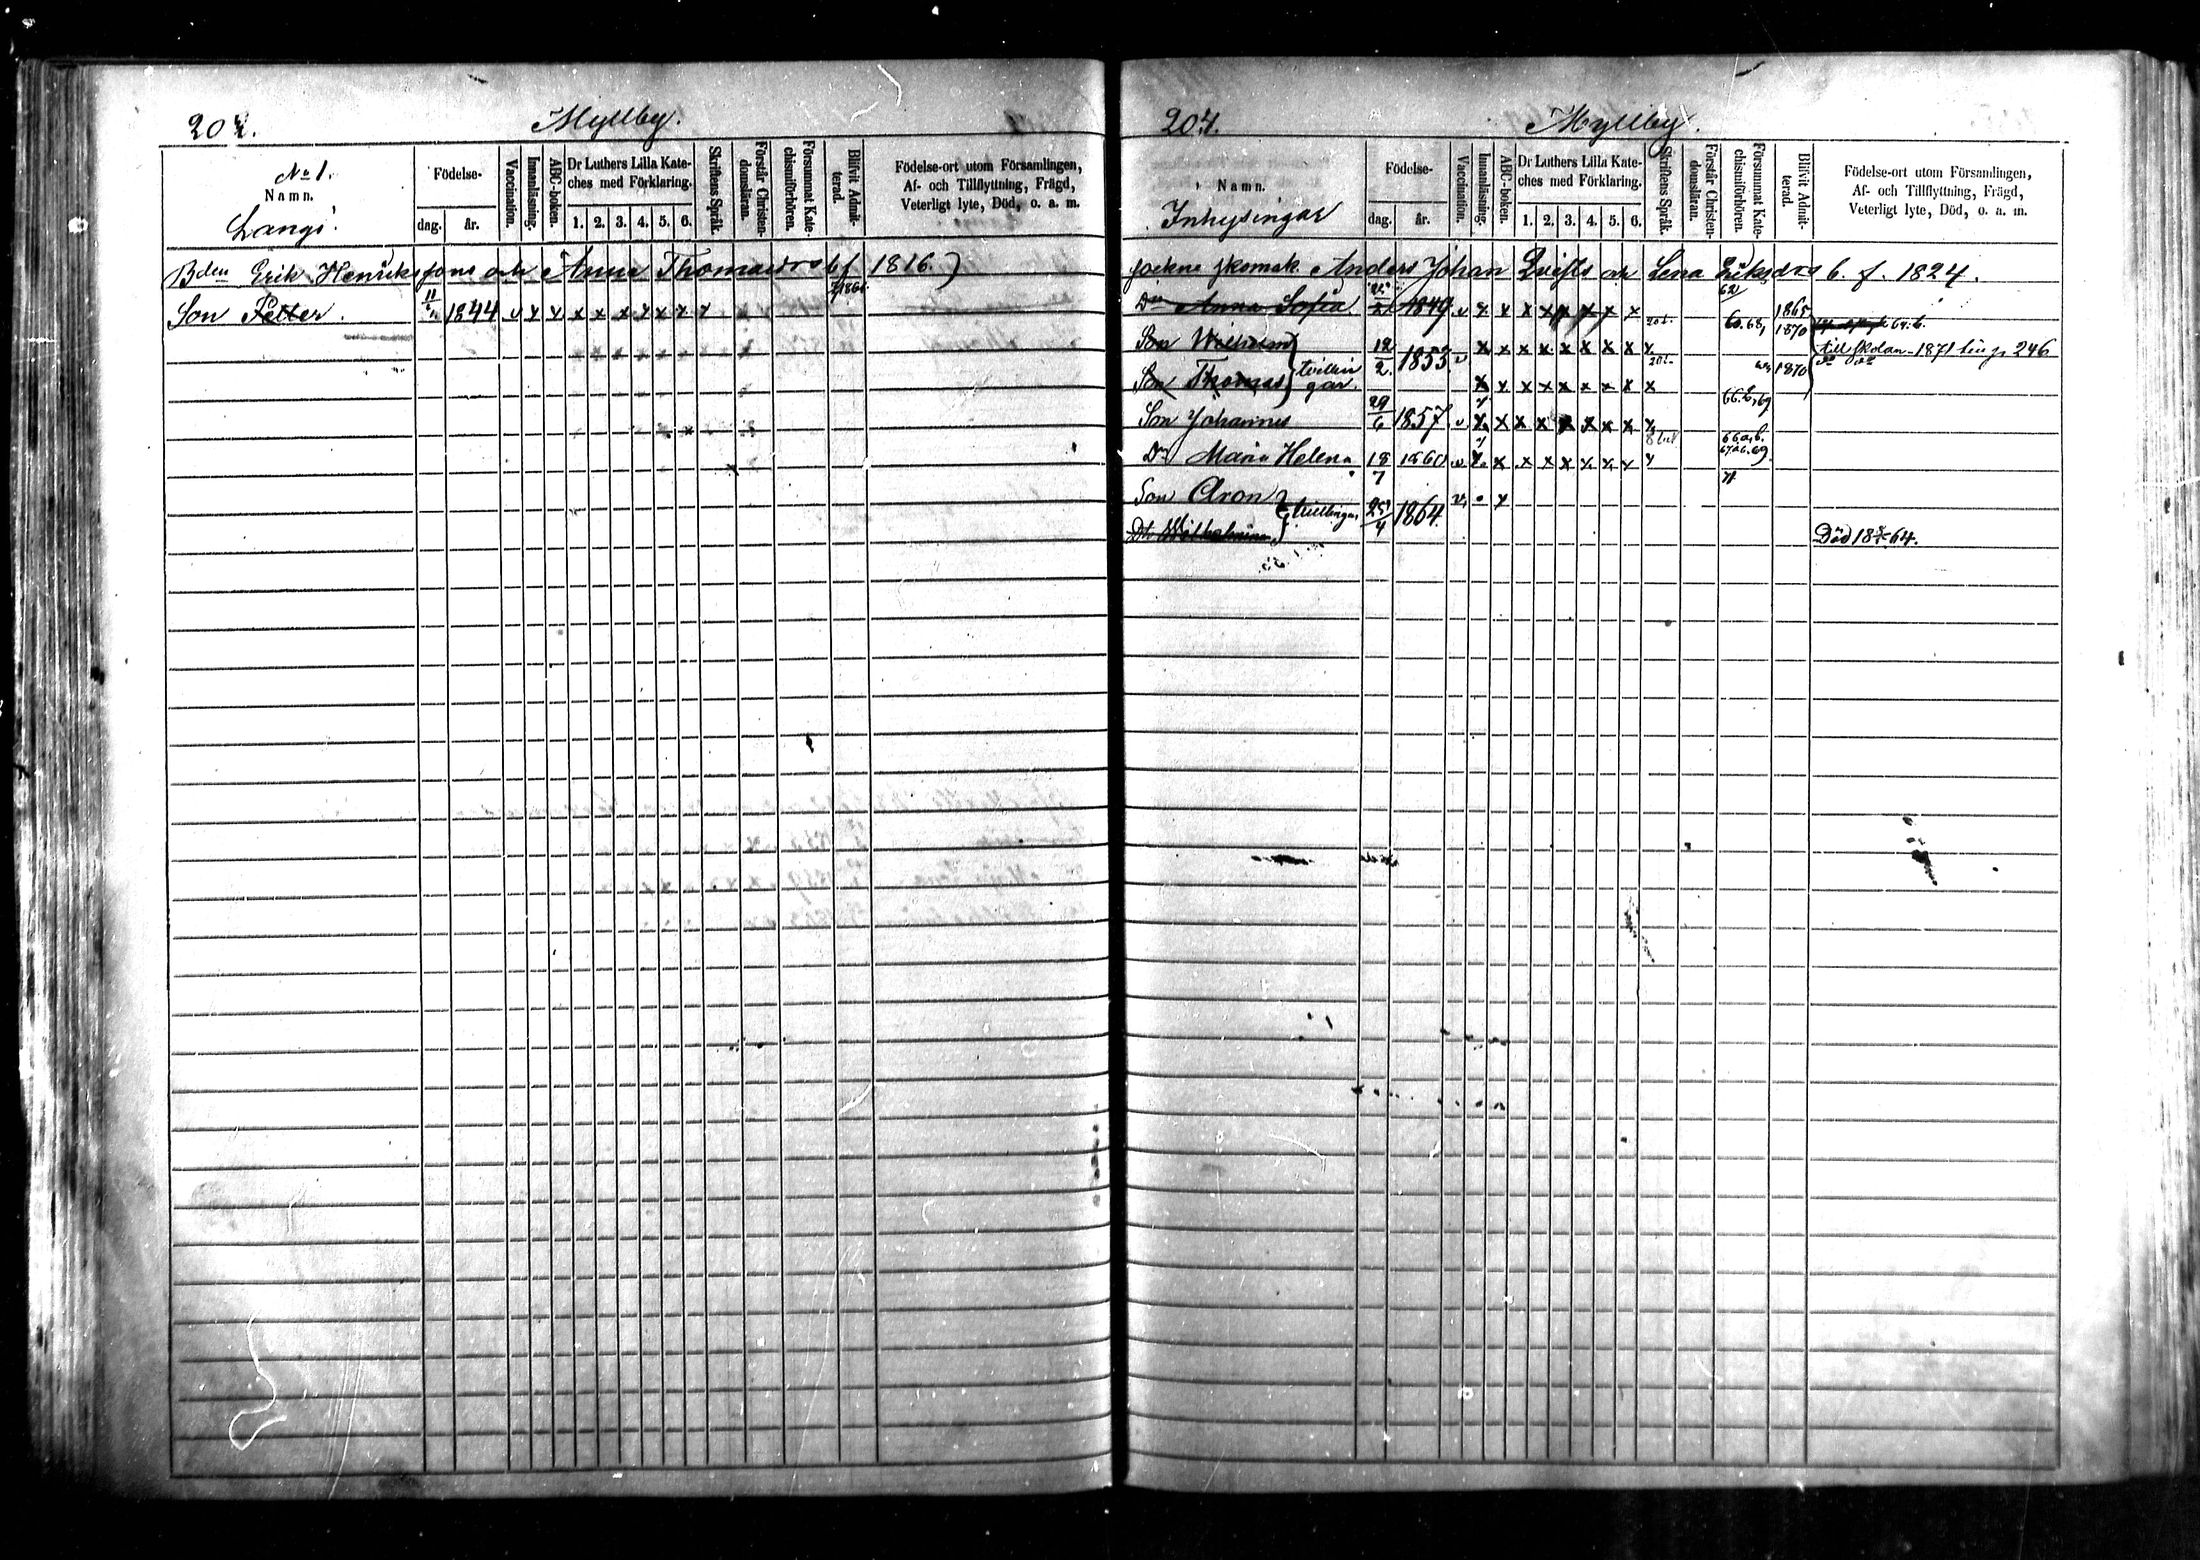 204.
Myllby.
No 1.
Namn.
Langi.
Födelse-
dag.
år.
Vaccination.
Innanläsning.
ABC-boken.
Dr Luthers Lilla Kate-
ches med Förklaring.
1. 2. 3. 4. 5. 6.
Skriftens Språk.
Förstår Christen-
domsläran.
Försummat Kate-
chismiförhören.
Blifvit Admit-
terad.
Födelse-ort utom Församlingen,
Af- och Tillflyttning, Frägd,
Veterligt lyte, Död, o. a. m.
Bden Erik Henriksons och Anna Thomasdr b f 1816.
Son Petter. 1844 v x x x x x x x x x
204.
Myllby.
Namn.
Inhysingar
Födelse-
dag.
år.
Vaccination.
Innanläsning.
ABC-boken.
Dr Luthers Lilla Kate-
ches med Förklaring.
1. 2. 3. 4. 5. 6.
Skriftens Språk.
Förstår Christen-
domsläran.
Försummat Kate-
chismiförhören.
Blifvit Admit-
terad.
Födelse-ort utom Församlingen,
Af- och Tillflyttning, Frägd,
Veterligt lyte, Död, o. a. m.
Anders Johan Qvists Lena Eriksdr b. f. 1824.
Dr Anna Sofia 1849 v x x x x x x x x 62 1865
Son Wilhelm 12/2 1853 v x x x x x x x x x 1870 till skolan 1871 p 246
Son Thomas x x x x x x x x x 1870
Son Johannes 29/6 1857 v x x x x x x x x x
Dr Maria Helena 18/7 1860 v x x x x x x x x x
Son Aron tvillingar 25/4 1864. v x
Dr Wilhelmina Död 18 64.